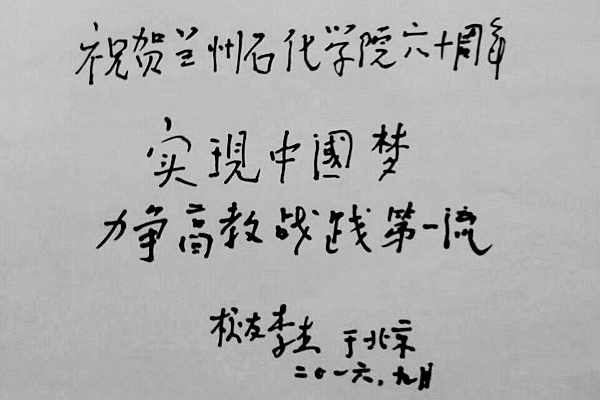 祝贺兰州石化学院六十周年
实现中國梦
力争高教战践第一流
校友李杰 于北京
二〇一六.九月